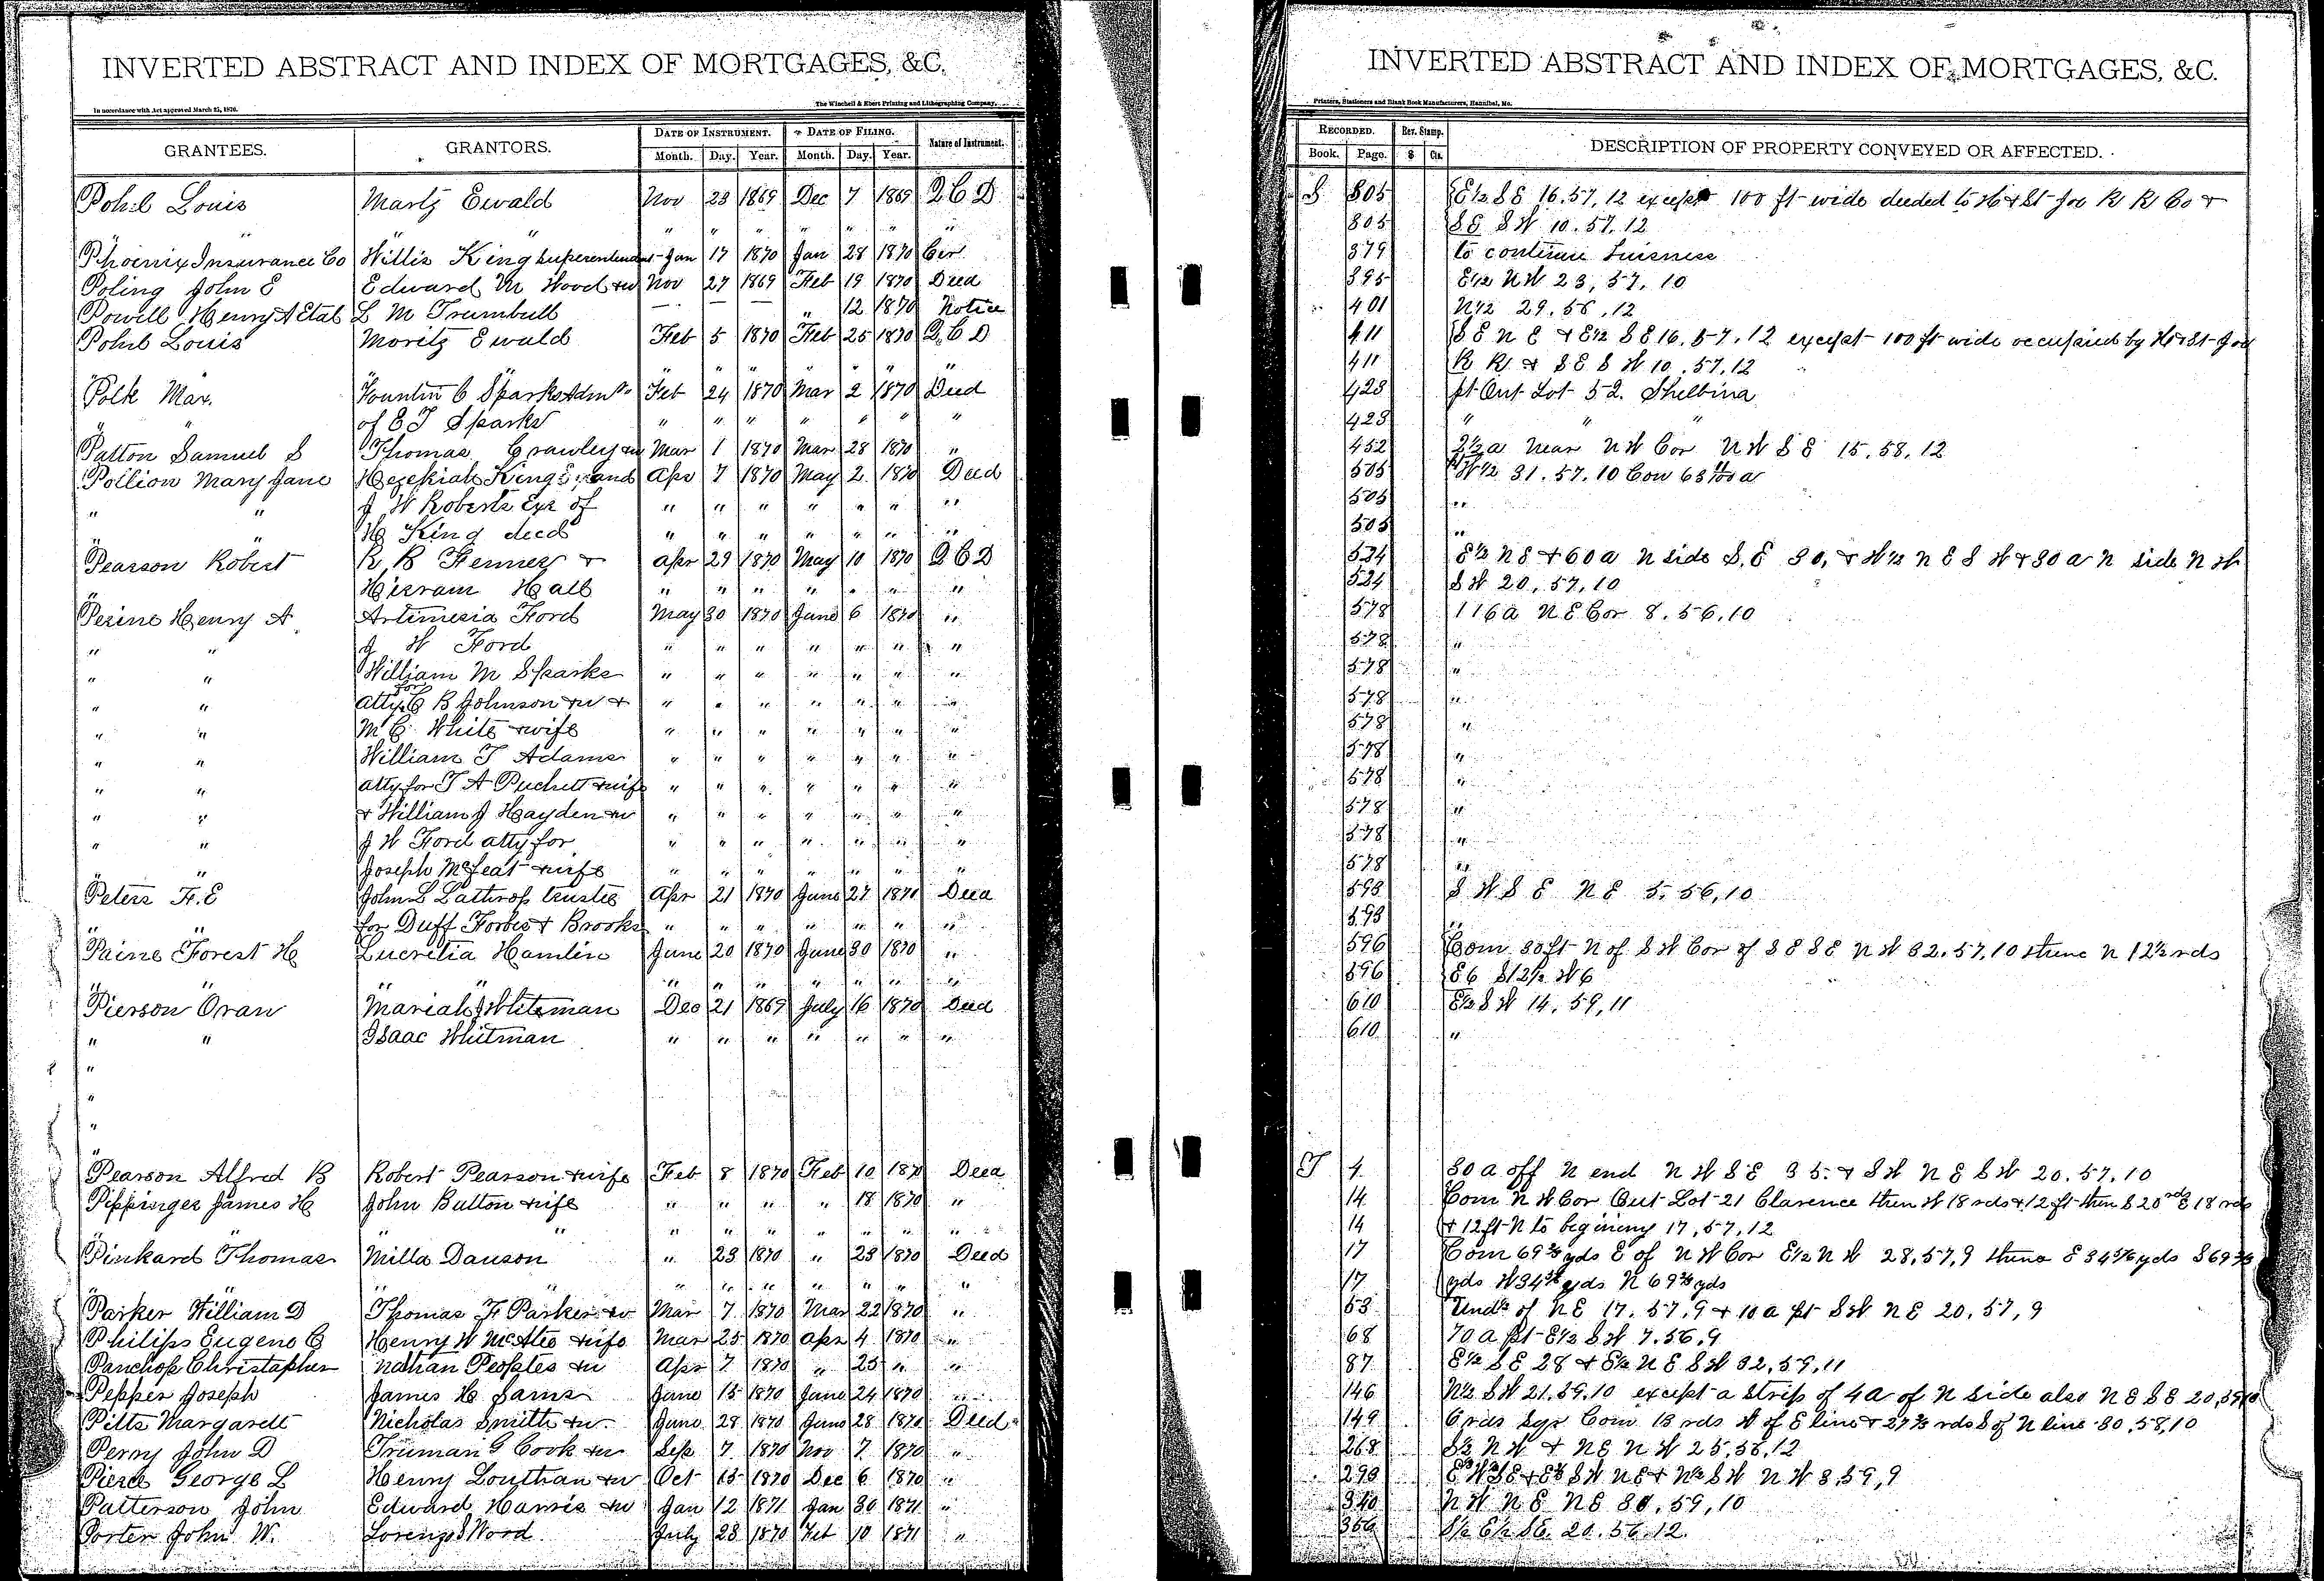 INVERTED ABSTRACT AND INDEX OF MORTGAGES, &C.
In accordance with Act approved March 25, 1870.
The Winchell & Ebert Printing and Lithographing Company,
GRANTEES. GRANTORS. DATE OF INSTRUMENT. DATE OF FILING. Nature of Instrument.
Month. Day. Year. Month. Day. Year.
Pohl Louis Martz Ewald Nov 23 1869 Dec 7 1869 Q C D
" " " " " " " " "
Phoenix Insurance Co Willis King Superentendent Jan 17 1870 Jan 28 1870 Cer
Poling John E Edward M Wood &w Nov 27 1869 Feb 19 1870 Deed
Powell Henry A Etal L M Trumbull — — — " 12 1870 Notice
Pohl Louis Moritz Ewald Feb 5 1870 Feb 25 1870 Q C D
" " " " " " " " "
Polk Mar. Fountin C Sparks Admr Feb 24 1870 Mar 2 1870 Deed
" " of E T Sparks " " " " " " "
Patton Samuel S Thomas Crawley &w Mar 1 1870 Mar 28 1870 "
Pollion Mary Jane Hezekiah King and Apr 7 1870 May 2 1870 Deed
" " J W Roberts Exr of " " " " " " "
" " H King decd " " " " " " "
Pearson Robert R B Fenner & Apr 29 1870 May 10 1870 Q C D
" Hirram Hall " " " " " " "
Perine Henry A Artimesia Ford May 30 1870 June 6 1870 "
" " J W Ford " " " " " " "
" " William M Sparks " " " " " " "
" " atty for C B Johnson &w & " " " " " " "
" " M C White & wife " " " " " " "
" " William T Adams " " " " " " "
" " atty for T A Puckett & wife " " " " " " "
" " & William J Hayden &w " " " " " " "
" " J W Ford atty for " " " " " " "
" " Joseph McLeat & wife " " " " " " "
Peters F. E John L Lathrop trustee Apr 21 1870 June 27 1870 Deed
" " for Duff Forbes & Brooks " " " " " " "
Paine Forest H Lucretia Hamlin June 20 1870 June 30 1870 "
" " " " " " " " " "
Pierson Oran Mariah J Whiteman Dec 21 1869 July 16 1870 Deed
" " Isaac Whitman " " " " " " "
"
"
"
"
Pearson Alfred B Robert Pearson & wife Feb 8 1870 Feb 10 1870 Deed
Pippinger James H John Button & wife " " " " 18 1870 "
" " " " " " " " "
Pinkard Thomas Milla Dawson " 23 1870 " 23 1870 Deed
" " " " " " " " "
Parker William D Thomas F Parker &w Mar 7 1870 Mar 22 1870 "
Philips Eugene C Henry W McAtee & wife Mar 25 1870 Apr 4 1870 "
Panchop Christapher Nathan Peoples &w Apr 7 1870 " 25 " "
Pepper Joseph James H Sams June 15 1870 June 24 1870 "
Pilts Margarett Nicholas Smith &w June 28 1870 June 28 1870 Deed
Perry John D Truman G Cook &w Sep 7 1870 Nov 7 1870 "
Pierce George L Henry Louthan &w Oct 15 1870 Dec 6 1870 "
Patterson John Edward Harris &w Jan 12 1871 Jan 30 1871 "
Porter John W. Lorenzo S Word July 28 1870 Feb 10 1871 "
INVERTED ABSTRACT AND INDEX OF MORTGAGES, &C.
Printers, Stationers and Blank Book Manufacturers, Hannibal, Mo.
RECORDED. Rev. Stamp. DESCRIPTION OF PROPERTY CONVEYED OR AFFECTED.
Book. Page. $ Cts.
S 305 E½ SE 16.57,12 except 100 ft wide deeded to H & St Joe R R Co &
305 SE SW 10.57.12
379 to continue buisness
395 E½ NW 23, 57, 10
401 N½ 29.56,12
411 SE NE & E½ SE 16.57.12 except 100 ft wide occupied by H & St Joe
411 R R & SE SW 10.57,12
423 pt Out Lot 52. Shelbina
423 " " "
452 2½ a near NW Cor NW SE 15,58,12
505 W½ 31.57.10 Con 63 a
505 "
505 "
524 E½ NE & 60 a N side S.E 30, & W½ NE SW & 30 a N side NW
524 SW 20,57,10
578 116 a NE Cor 8.56,10
578 "
578 "
578 "
578 "
578 "
578 "
578 "
578 "
578 "
593 SW SE NE 5.56,10
593 "
596 Com 30 ft N of SW Cor of SE SE NW 32.57,10 thence N 12½ rds
596 E6 S12½ W6
610 E½ SW 14.59,11
610 "
T 4 30 a off N end NW SE 35. & SW NE SW 20.57,10
14 Com NW Cor Out Lot 21 Clarence then W 18 rds & 12 ft then S 20 rds E 18 rds
14 & 12 ft N to begining 17,57,12
17 Com 69 yds E of NW Cor E½ NW 28,57,9 thence E 34 yds S 69
17 yds W 34 yds N 69 yds
53 Und½ of NE 17.57,9 & 10 a pt SW NE 20,57,9
68 70 a pt E½ SW 7.56.9
87 E½ SE 28 & E½ NE SW 32,59,11
146 N½ SW 21.59.10 except a strip of 4 a of N side also NE SE 20,59,10
149 6 rds Sqr Com 13 rds W of E line & 27 rds S of N line 30,58,10
268 S½ NW & NE NW 25,58,12
293 E½ W½ SE & E½ SW NE & N½ SW NW 8,59,9
340 NW NE NE 30,59,10
356 S½ E½ SE. 20.56.12.